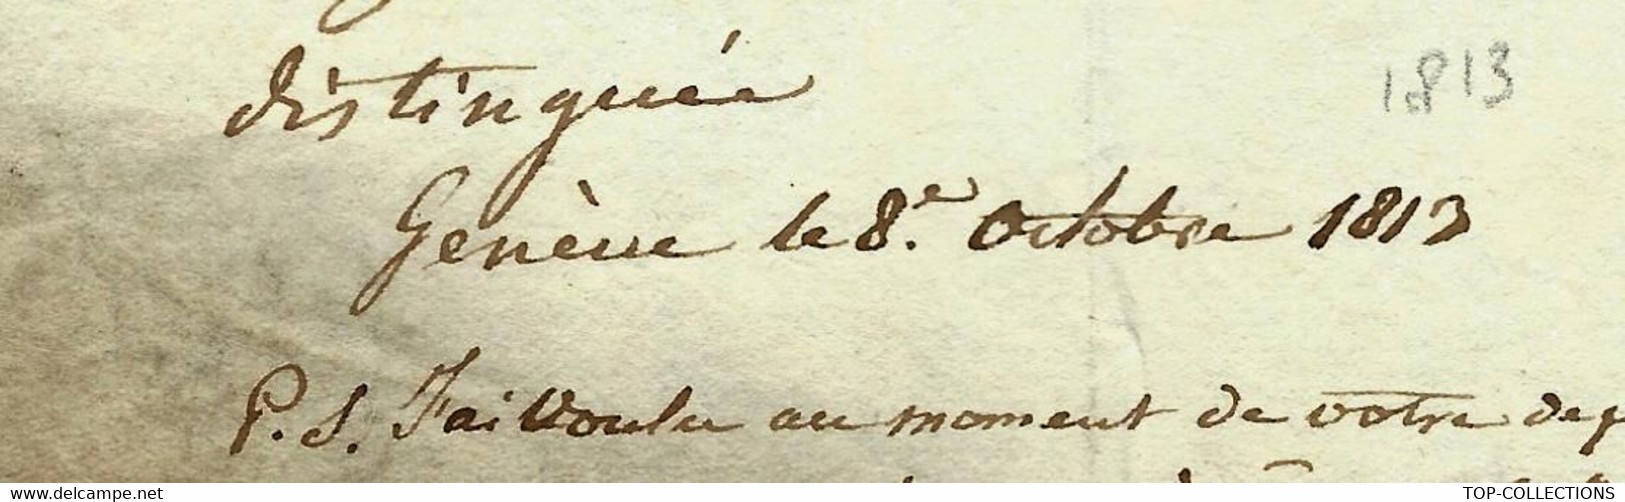 distinguée
1813
Genève le 8.e Octobre 1813
P.S. J'ai voulu au moment de votre dep
www.delcampe.net TOP-COLLECTIONS